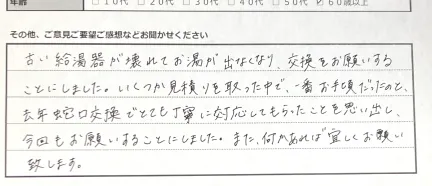 年齢 □10代 □20代 □30代 □40代 □50代 ☑60歳以上
その他、ご意見ご要望ご感想などお聞かせください
古い給湯器が壊れてお湯が出なくなり、交換をお願いする
ことにしました。いくつか見積りを取った中で、一番お手頃だったのと、
去年蛇口交換でとても丁寧に対応してもらったことを思い出し、
今回もお願いすることにしました。また、何かあれば宜しくお願い
致します。